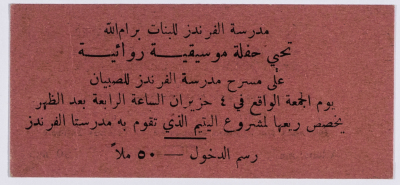 مدرسة الفرندز للبنات برام الله
تحيي حفلة موسيقية روائية
على مسرح مدرسة الفرندز للصبيان
يوم الجمعة الواقع في ٤ حزيران الساعة الرابعة بعد الظهر
يخصص ريعها لمشروع اليتيم الذي تقوم به مدرستا الفرندز
رسم الدخول — ٥٠ ملاً